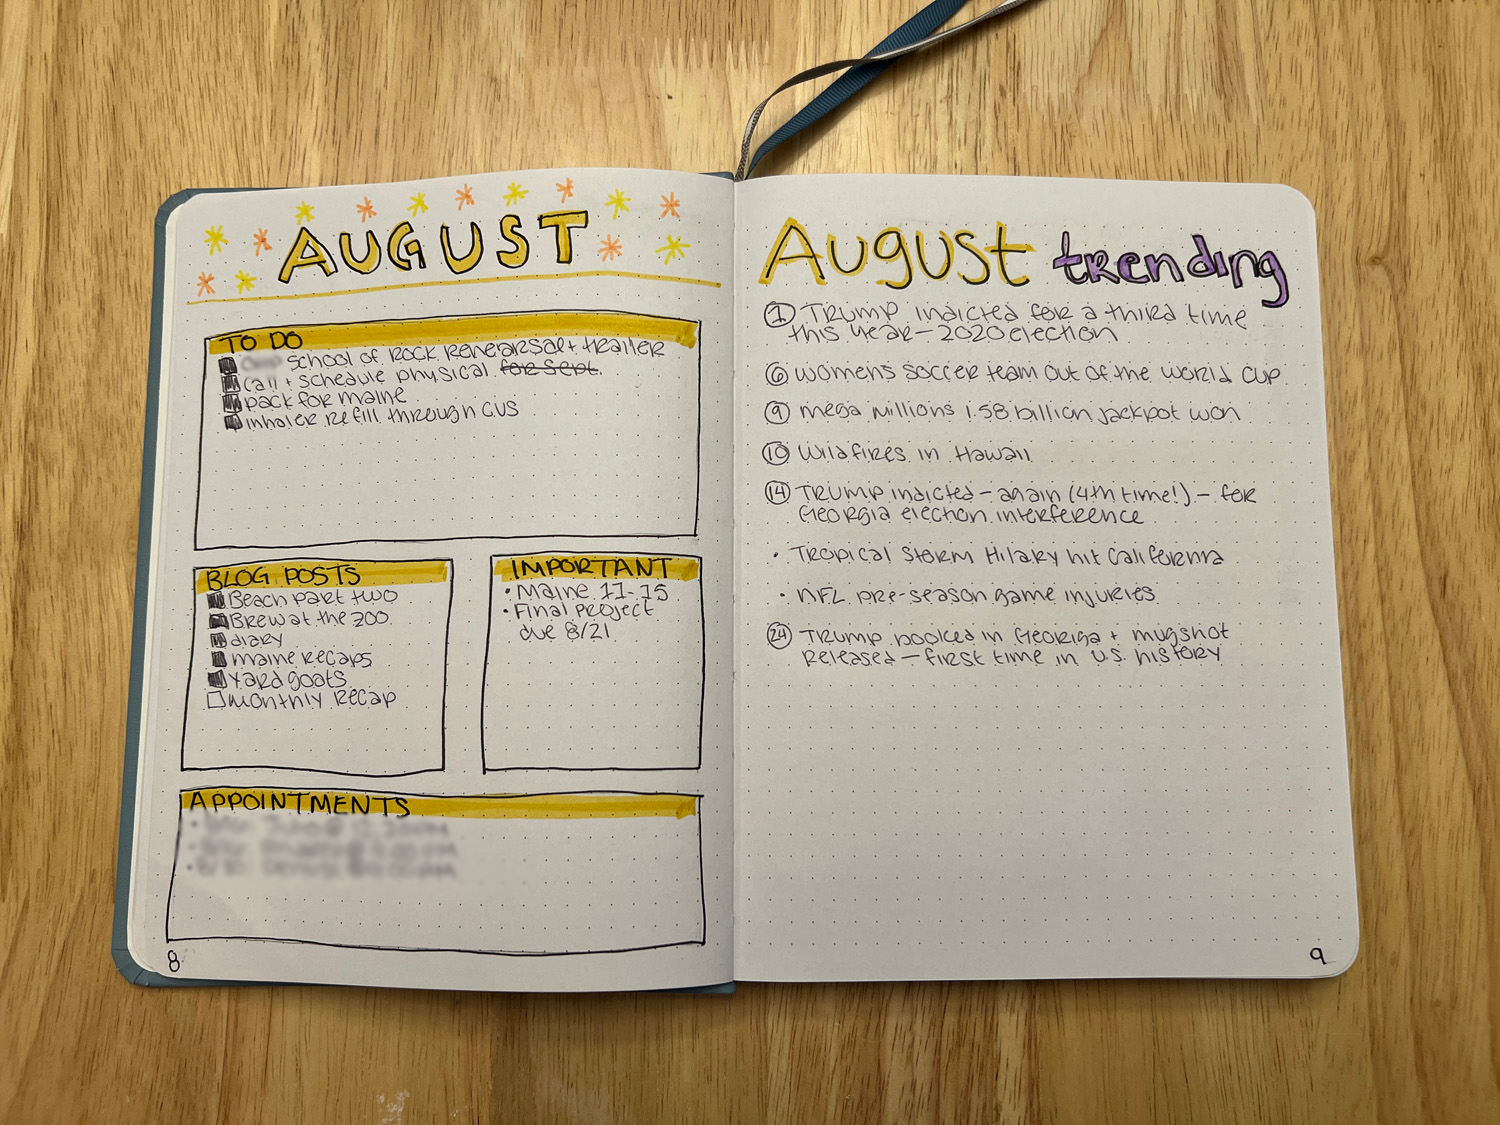 AUGUST
TO DO
School of Rock rehearsal + trailer
call + schedule physical for sept.
pack for maine
inhaler refill through CVS
BLOG POSTS
Beach part two
Brew at the zoo
diary
maine recaps
yard goats
monthly recap
IMPORTANT
• Maine 11-15
• Final project
due 8/21
APPOINTMENTS
8
August trending
1 Trump indicted for a third time
this year - 2020 election
6 Womens soccer team out of the world cup
9 mega millions 1.58 billion jackpot won
10 Wildfires in Hawaii
14 Trump indicted - again (4th time!) - for
Georgia election interference
• Tropical Storm Hilary hit California
• NFL pre-season game injuries
24 Trump booked in Georgia + mugshot
released - first time in U.S. history
9